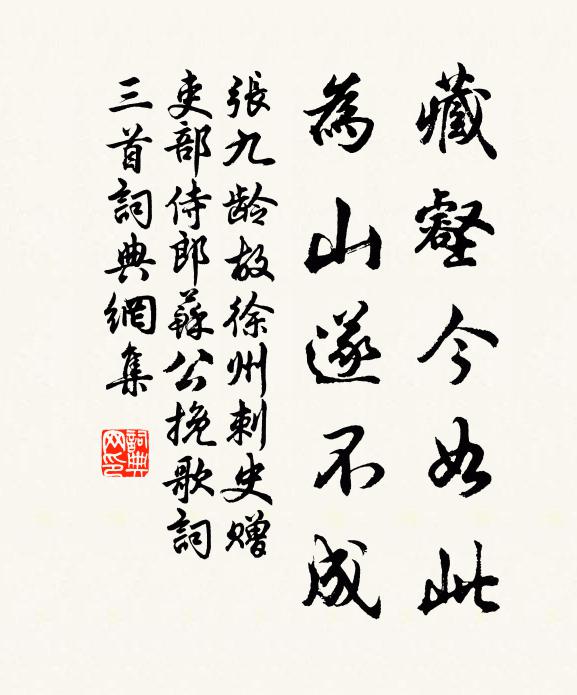 藏壑今如此
為山遂不成
張九龄故徐州刺史赠
吏部侍郎蘇公挽歌詞
三首詞典網集
詞典
网印